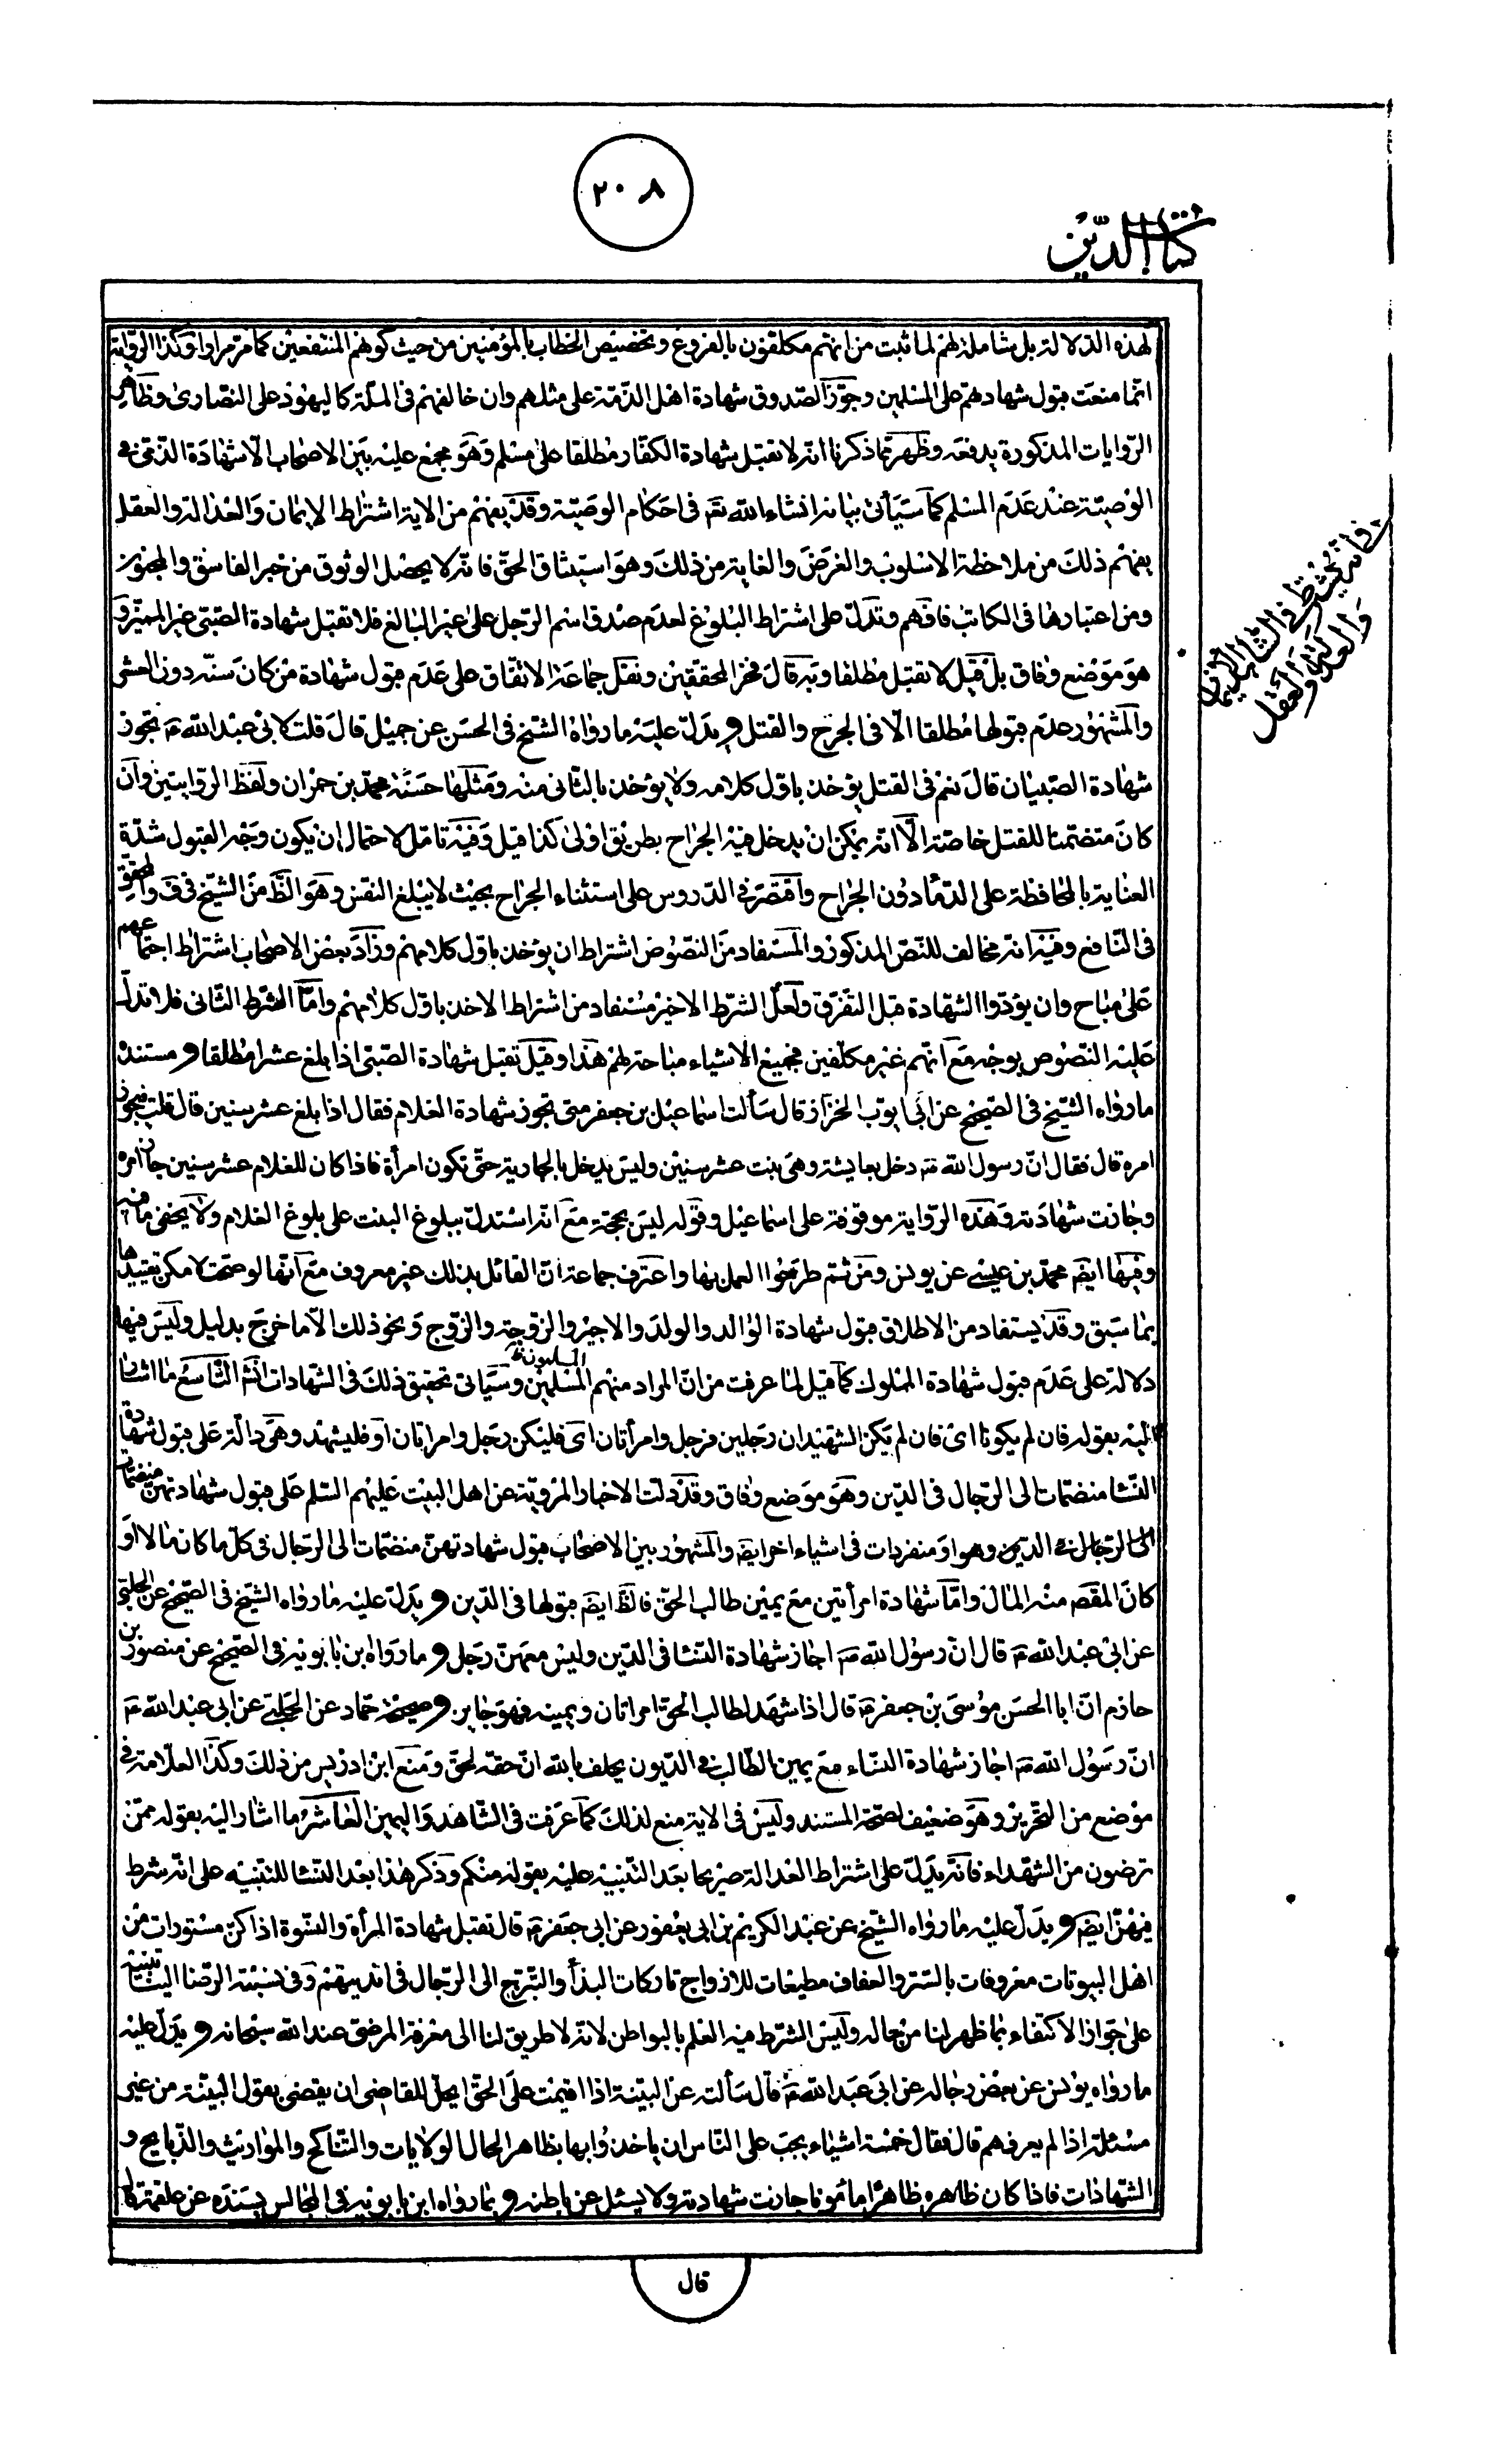 ٢٠٨
كتاب الدين
لهذه الدلالة بل شاملة لهم لما ثبت من انهم مكلفون بالفروع وتخصيص الخطاب بالمؤمنين من حيث كونهم المنتفعين كما مر مرارا وكذا الرواية
انما منعت قبول شهادتهم على المسلمين وجوز الصدوق شهادة اهل الذمة على مثلهم وان خالفهم فى الملة كاليهود على النصارى وظاهر
الروايات المذكورة يدفعه وظهر مما ذكرنا انه لا تقبل شهادة الكفار مطلقا على مسلم وهو مجمع عليه بين الاصحاب الا شهادة الذمى فى
الوصية عند عدم المسلم كما سيأتى بيانه انشاء الله تعم فى احكام الوصية وقد يفهم من الاية اشتراط الايمان والعدالة والعقل
يفهم ذلك من ملاحظة الاسلوب والغرض والغاية من ذلك وهو استيثاق الحق فانه لا يحصل الوثوق من خبر الفاسق والمجنون
ومن اعتبارها فى الكاتب فافهم وتدل على اشتراط البلوغ لعدم صدق اسم الرجل على غير البالغ فلا تقبل شهادة الصبى غير المميز و
هو موضع وفاق بل قيل لا تقبل مطلقا وبه قال فخر المحققين ونقل جماعة الاتفاق على عدم قبول شهادة من كان سنه دون العشر
والمشهور عدم قبولها مطلقا الا فى الجرح والقتل ويدل عليه ما رواه الشيخ فى الحسن عن جميل قال قلت لابى عبد الله ع تجوز
شهادة الصبيان قال نعم فى القتل يؤخذ باول كلامه ولا يؤخذ بالثانى منه ومثلها حسنة محمد بن حمران ولفظ الروايتين وان
كان متضمنا للقتل خاصة الا انه يمكن ان يدخل فيه الجراح بطريق اولى كذا قيل وفيه تامل لاحتمال ان يكون وجه القبول شدة
العناية بالمحافظة على الدماء دون الجراح واقتصر فى الدروس على استثناء الجراح بحيث لا يبلغ النفس وهو الظ من الشيخ فى ف والمحقق
فى النافع وفيه انه مخالف للنص المذكور والمستفاد من النصوص اشتراط ان يؤخذ باول كلامهم وزاد بعض الاصحاب اشتراط اجتماعهم
على مباح وان يؤدوا الشهادة قبل التفرق ولعل الشرط الاخير مستفاد من اشتراط الاخذ باول كلامهم واما الشرط الثانى فلا تدل
عليه النصوص بوجه مع انهم غير مكلفين فجميع الاشياء مباحة لهم هذا وقيل تقبل شهادة الصبى اذا بلغ عشرا مطلقا ومستنده
ما رواه الشيخ فى الصحيح عن ابى ايوب الخزاز قال سألت اسماعيل بن جعفر متى تجوز شهادة الغلام فقال اذا بلغ عشر سنين قال قلت فيجوز
امره قال فقال ان رسول الله ص دخل بعايشة وهى بنت عشر سنين وليس يدخل بالجارية حتى تكون امرأة فاذا كان للغلام عشر سنين جاز امره
وجازت شهادته وهذه الرواية موقوفة على اسماعيل وقوله ليس بحجة مع انه استدل ببلوغ البنت على بلوغ الغلام ولا يخفى ما فيه
وفيها ايضم محمد بن عيسى عن يونس ومن ثم طرحوا العمل بها واعترف جماعة ان القائل بذلك غير معروف مع انها لو صحت لامكن تقييدها
بما سبق وقد يستفاد من الاطلاق قبول شهادة الوالد والولد والاجير والزوجة والزوج ونحو ذلك الا ما خرج بدليل وليس فيها
دلالة على عدم قبول شهادة المملوك كما قيل لما عرفت من ان المراد منهم المسلمين وسيأتى تحقيق ذلك فى الشهادات انشم التاسع ما اشار
المسلمون ظ
اليه بقوله فان لم يكونا اى فان لم يكن الشهيدان رجلين فرجل وامرأتان اى فليكن رجل وامرأتان او فليشهد وهى دالة على قبول شهادة
النسا منضمات الى الرجال فى الدين وهو موضع وفاق وقد دلت الاخبار المروية عن اهل البيت عليهم السلم على قبول شهادتهن منضمات
الى الرجال فى الدين وهو او منفردات فى اشياء اخر ايضم والمشهور بين الاصحاب قبول شهادتهن منضمات الى الرجال فى كل ما كان مالا او
كان المقصم منه المال واما شهادة امرأتين مع يمين طالب الحق فالظ ايضم قبولها فى الدين ويدل عليه ما رواه الشيخ فى الصحيح عن الحلبى
عن ابى عبد الله ع قال ان رسول الله ص اجاز شهادة النسا فى الدين وليس معهن رجل وما رواه ابن بابويه فى الصحيح عن منصور بن
حازم ان ابا الحسن موسى بن جعفر ع قال اذا شهد لطالب الحق امراتان ويمينه فهو جايز وصحيحة حماد عن الحلبى عن ابى عبد الله ع
ان رسول الله ص اجاز شهادة النساء مع يمين الطالب فى الديون يحلف بالله ان حقه لحق ومنع ابن ادريس من ذلك وكذا العلامة فى
موضع من التحرير وهو ضعيف لصحة المستند وليس فى الاية منع لذلك كما عرفت فى الشاهد واليمين العاشر ما اشار اليه بقوله ممن
ترضون من الشهداء فانه يدل على اشتراط العدالة صريحا بعد التنبيه عليه بقوله منكم وذكر هذا بعد النسا للتنبيه على انه شرط
فيهن ايضم ويدل عليه ما رواه الشيخ عن عبد الكريم بن ابى يعفور عن ابى جعفر ع قال تقبل شهادة المرأة والنسوة اذا كن مستورات من
اهل البيوتات معروفات بالستر والعفاف مطيعات للازواج تاركات البذأ والتبرج الى الرجال فى انديتهم وفى نسبته الرضا الينا تنبيه
على جواز الاكتفاء بما ظهر لنا من حاله وليس الشرط فيه العلم بالبواطن لانه لا طريق لنا الى معرفة المرضى عند الله سبحانه ويدل عليه
ما رواه يونس عن بعض رجاله عن ابى عبد الله ع قال سألته عن البينة اذا اقيمت على الحق ايحل للقاضى ان يقضى بقول البينة من غير
مسئلة اذا لم يعرفهم قال فقال خمسة اشياء يجب على الناس ان ياخذوا بها بظاهر الحال الولايات والتناكح والمواريث والذبايح و
الشهادات فاذا كان ظاهره ظاهرا مأمونا جازت شهادته ولا يسئل عن باطنه وما رواه ابن بابويه فى المجالس بسنده عن علقمة
فانه يشترط فى الشاهد الايمان
والعدالة والعقل
قال